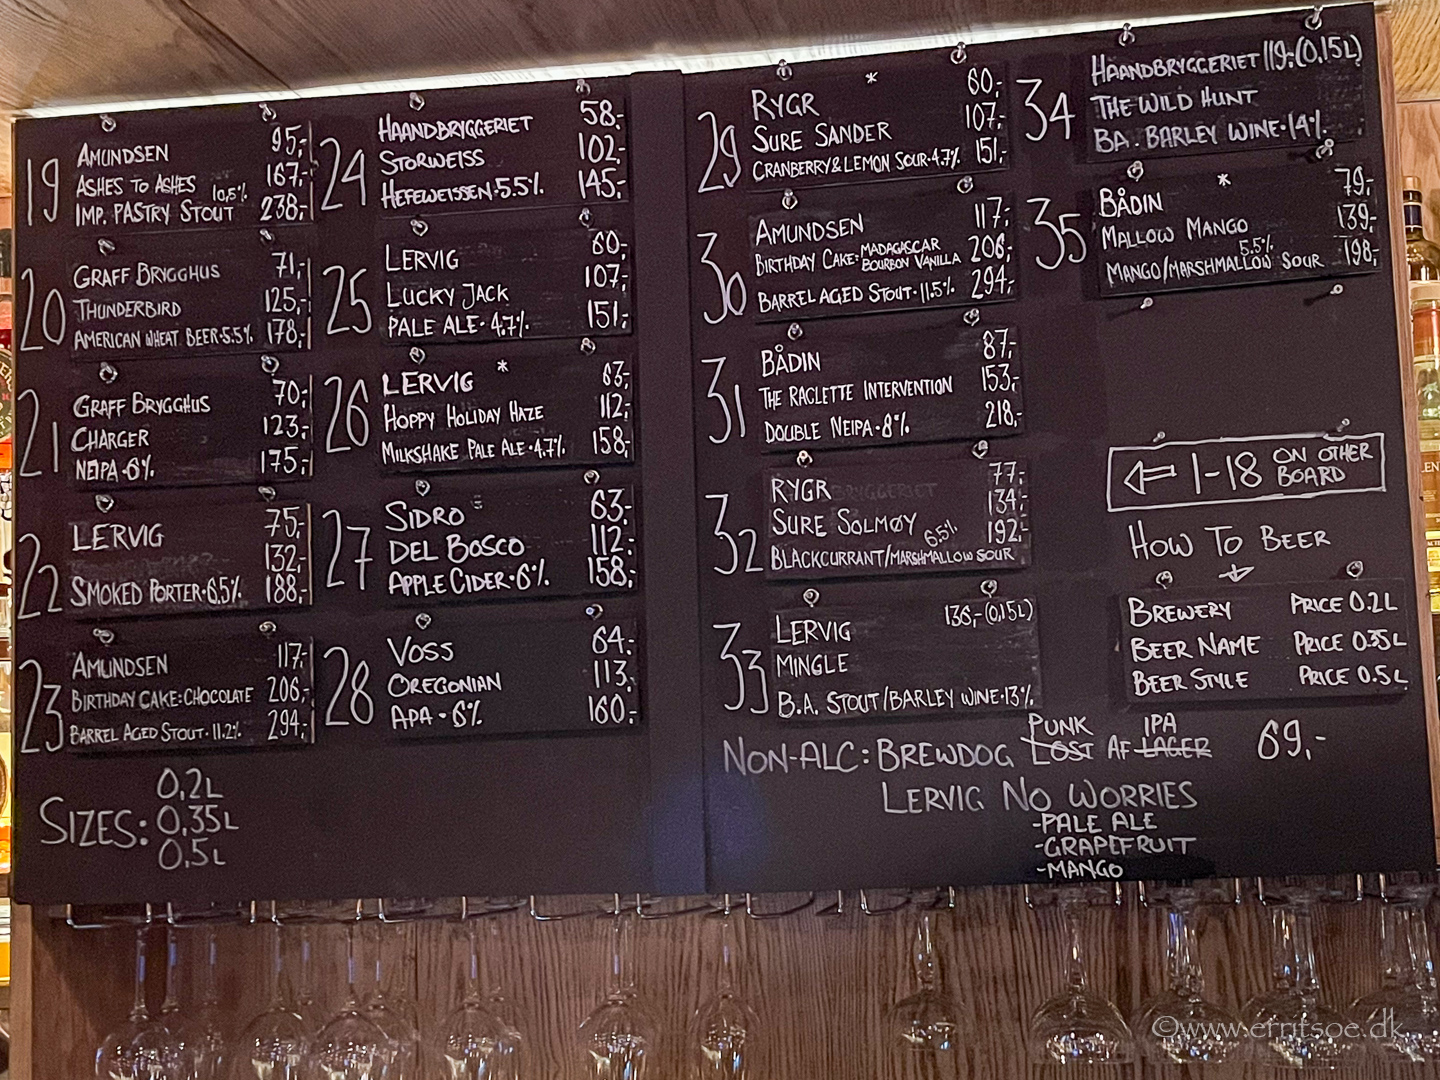 19 AMUNDSEN 95,-
ASHES TO ASHES 10,5% 167,-
IMP. PASTRY STOUT 238,-
20 GRAFF BRYGGHUS 71,-
THUNDERBIRD 125,-
AMERICAN WHEAT BEER·5.5% 178,-
21 GRAFF BRYGGHUS 70,-
CHARGER 123,-
NEIPA·6% 175,-
22 LERVIG 75,-
132,-
SMOKED PORTER·6,5% 188,-
23 AMUNDSEN 117,-
BIRTHDAY CAKE: CHOCOLATE 206,-
BARREL AGED STOUT·11.2% 294,-
SIZES: 0,2L
0,35L
0,5L
24 HAANDBRYGGERIET 58,-
STORWEISS 102,-
HEFEWEISSEN·5.5% 145,-
25 LERVIG 60,-
LUCKY JACK 107,-
PALE ALE·4.7% 151,-
26 LERVIG * 63,-
HOPPY HOLIDAY HAZE 112,-
MILKSHAKE PALE ALE·4.7% 158,-
27 SIDRO 63,-
DEL BOSCO 112,-
APPLE CIDER·6% 158,-
28 VOSS 64,-
OREGONIAN 113,-
APA·6% 160,-
29 RYGR * 60,-
SURE SANDER 107,-
CRANBERRY & LEMON SOUR·4.7% 151,-
30 AMUNDSEN 117,-
BIRTHDAY CAKE: MADAGASCAR BOURBON VANILLA 206,-
BARREL AGED STOUT·11.5% 294,-
31 BÅDIN 87,-
THE RACLETTE INTERVENTION 153,-
DOUBLE NEIPA·8% 218,-
32 RYGR 77,-
SURE SOLMØY 134,-
6.5% 192,-
BLACKCURRANT/MARSHMALLOW SOUR
33 LERVIG 136,-(0,15L)
MINGLE
B.A. STOUT/BARLEY WINE·13%
34 HAANDBRYGGERIET 119,-(0,15L)
THE WILD HUNT
BA. BARLEY WINE·14%
35 BÅDIN * 79,-
MALLOW MANGO 139,-
5.5%
MANGO/MARSHMALLOW SOUR 198,-
1-18 ON OTHER
BOARD
HOW TO BEER
BREWERY PRICE 0.2L
BEER NAME PRICE 0.35L
BEER STYLE PRICE 0.5L
PUNK IPA
NON-ALC: BREWDOG LOST AF LAGER 69,-
LERVIG NO WORRIES
-PALE ALE
-GRAPEFRUIT
-MANGO
©www.erritsoe.dk